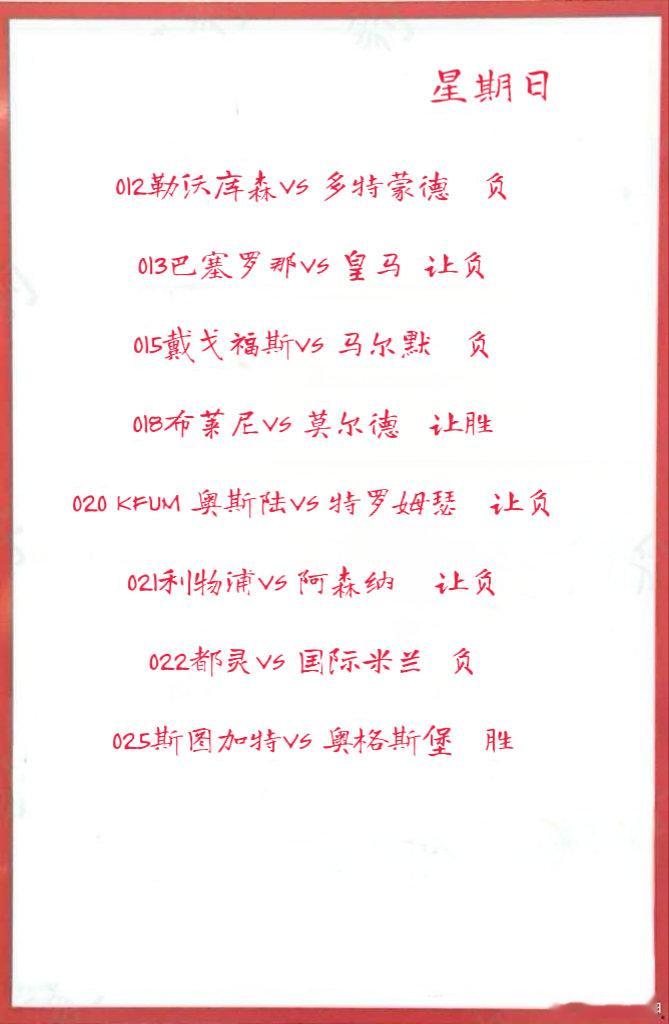 星期日
012勒沃库森VS 多特蒙德 负
013巴塞罗那VS 皇马 让负
015戴戈福斯VS 马尔默 负
018布莱尼VS 莫尔德 让胜
020 KFUM 奥斯陆VS 特罗姆瑟 让负
021利物浦VS 阿森纳 让负
022都灵VS 国际米兰 负
025斯图加特VS 奥格斯堡 胜